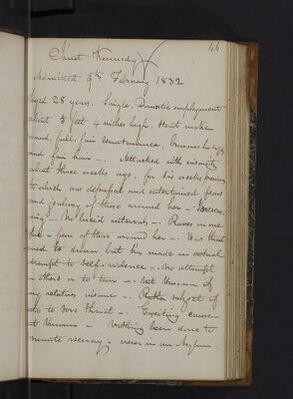 46
Janet Kennedy
Admitted 9th February 1832
Aged 28 years. Single, Domestic employment
about 5 feet 4 inches high, stout make
round, full, fair countenance,
and fair hair -. Attacked with insanity
about three weeks ago, for six weeks previous
to which was dejected and entertained fears
and jealousy of those around her -
- No lucid intervals -. Raves in one
- fear of those around her -.
to drown, but has made no actual
attempt to self-violence -. No attempt
others or to tear -. Not known if
any relatives insane -. subject of
to sore throat -. Exciting cause
not known -. Nothing been done to
promote recovery - never in an Asylum.